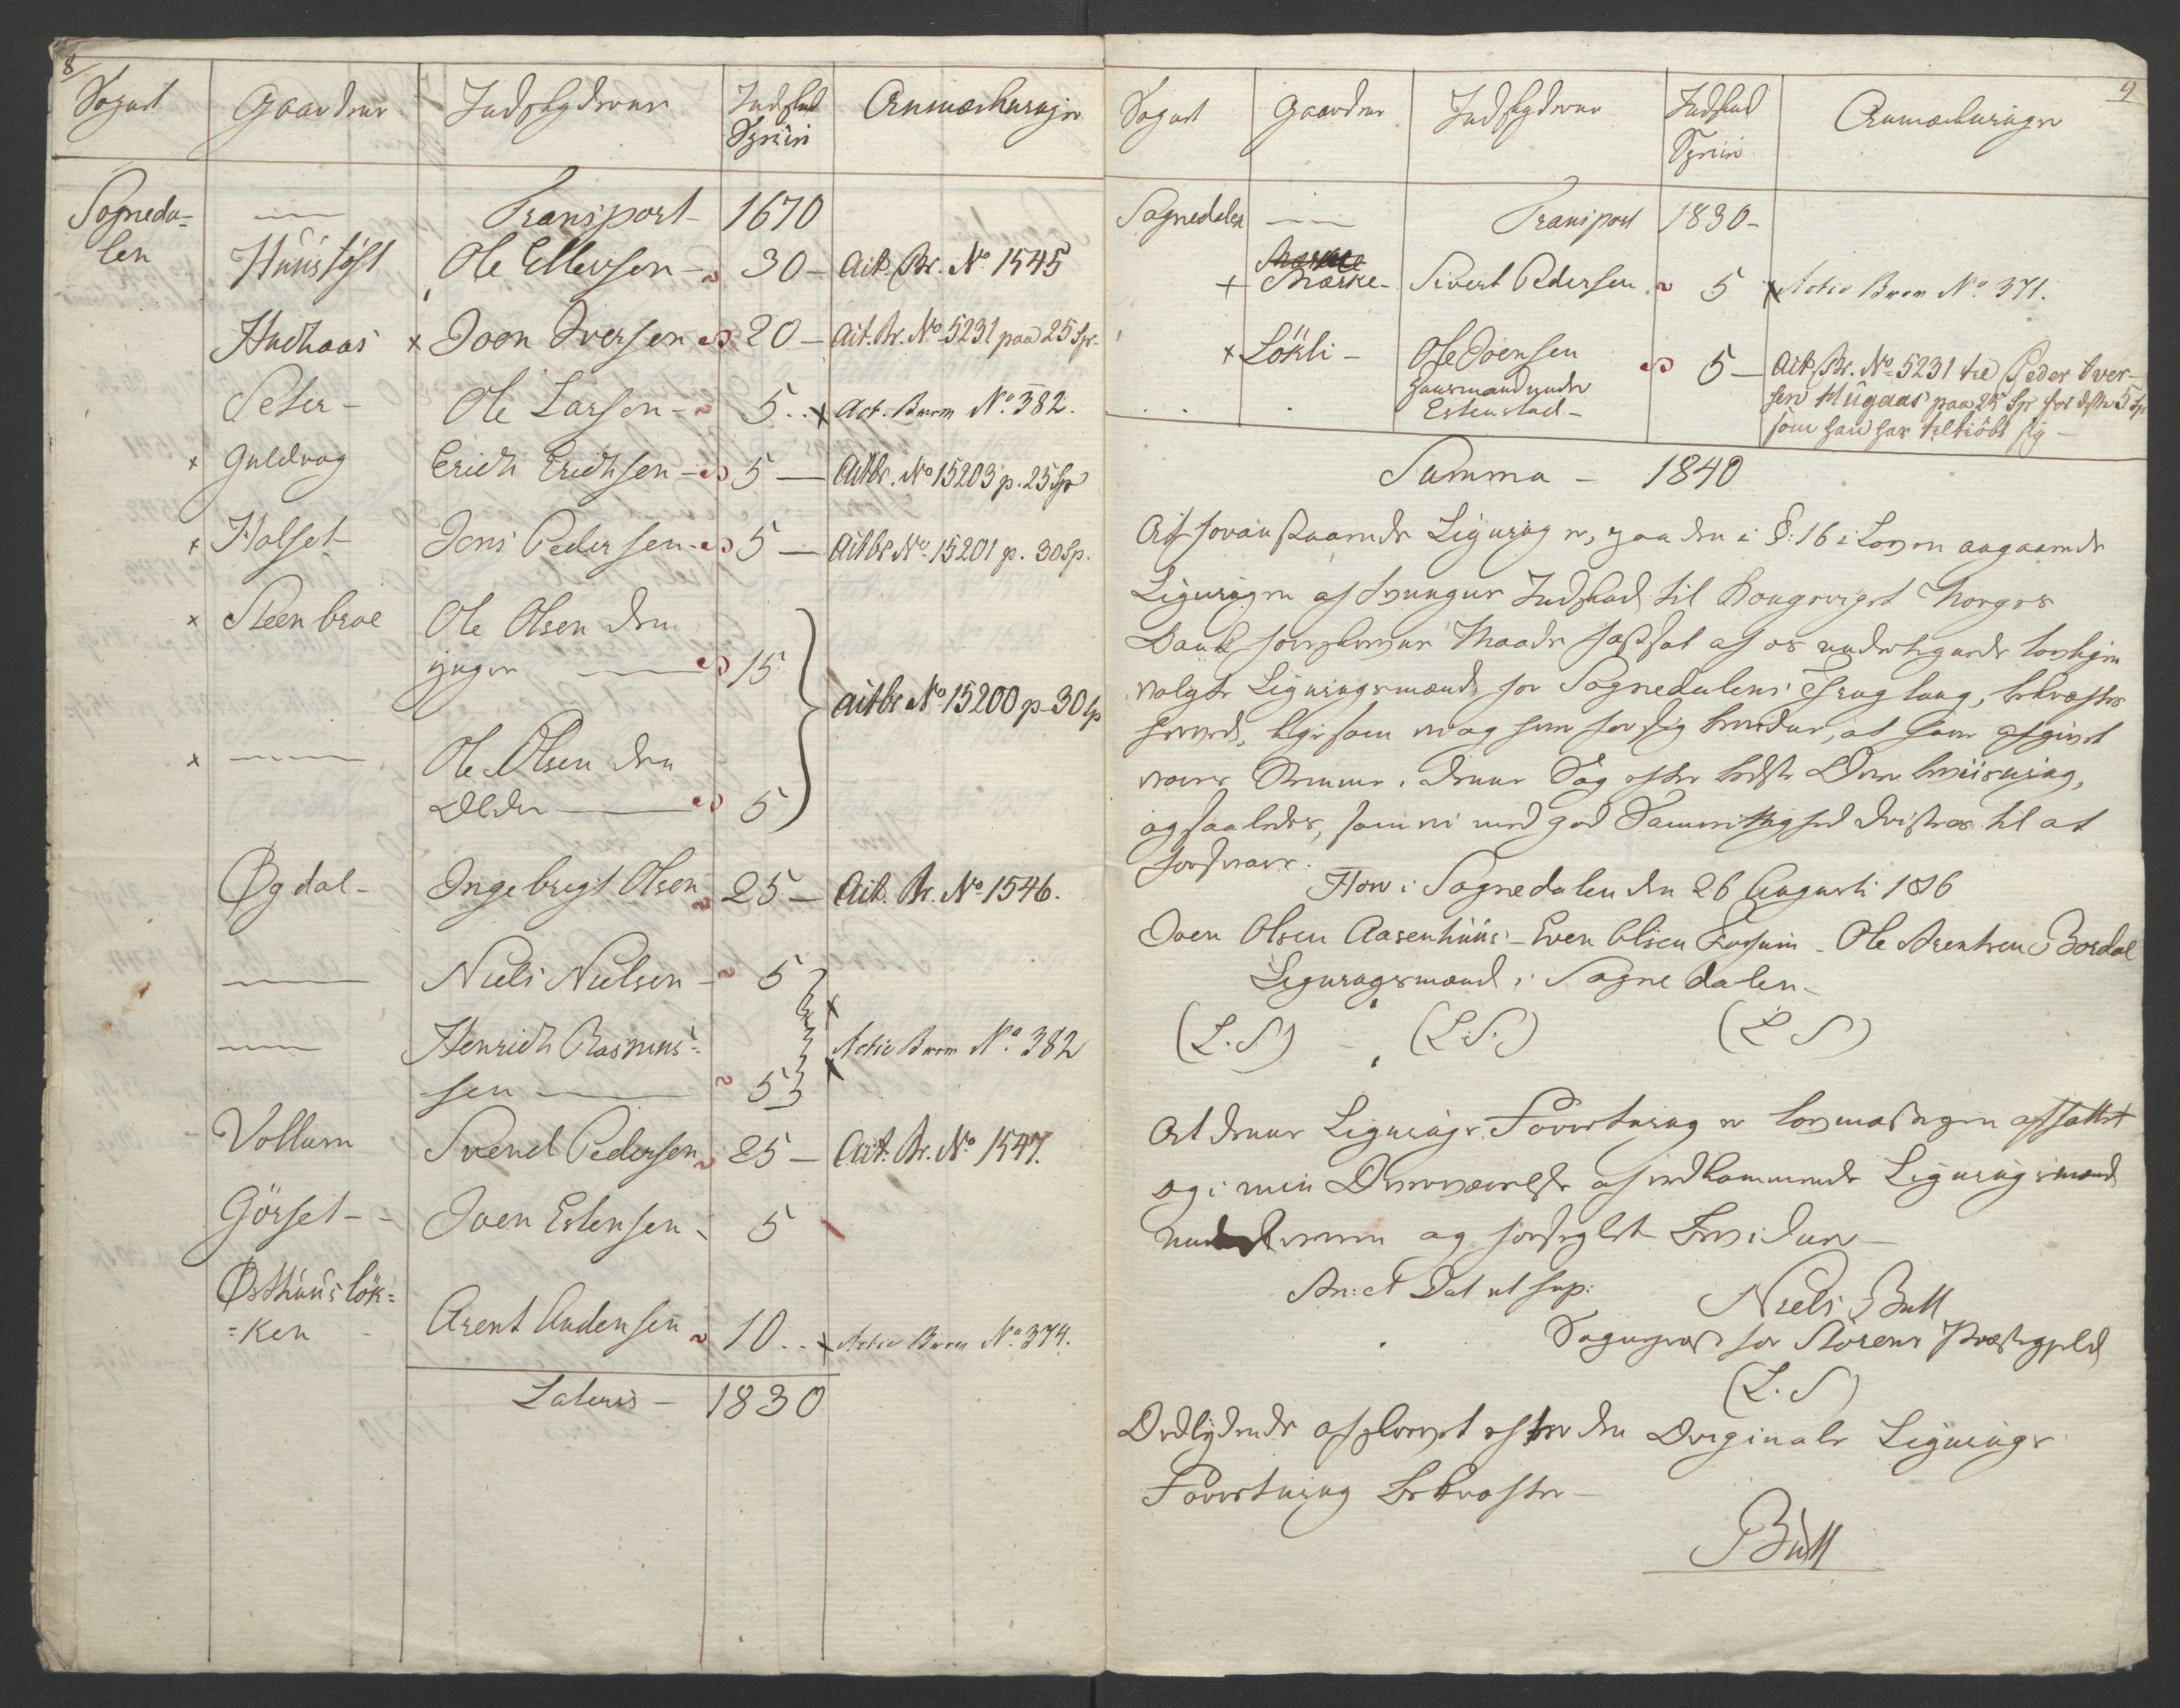 8
Sognet Gaardene Indskyderne Indskud Spetier Anmærkninger
Sogneda= — Transport – 1670
len Huustøft Ole Ellevsen – 30 – Act. Br. No. 1545
Hudhaas x Joen Iversen 20 – Act. Br. No. 5231 paa 25 Spr.
Seter – Ole Larsen – 5 .. x Act. Brev No. 382.
x Guldvog Erich Erichsen – 5 — Actbr. No 15203 p. 25 Sp
x Halset Jens Pedersen – 5 — Actbr No 15201 p. 30 Sp.
x Steenbroe Ole Olsen den
yngre — 15
actbr No 15200 p. 30 Sp
x — Ole Olsen den
Ældre — 5
Øgdal – Ingebrigt Olsen 25 – Act. Br. No 1546.
— Niels Nielsen – 5 x
— Henrich Rasmus= Actie Brev No. 382
sen — 5 x
Vollum Svend Pedersen 25 – Act. Br. No. 1547.
Görset – Joen Estensen – 5
Østhuuslök=
=ken Arent Andensen 10 .. x Actie Brev No. 374.
Lateris – 1830
9
Sognet Gaardene Indskyderne Indskud Spetier Anmærkninger
Sognedalen — Transport 1830 –
+ Mærke – Sivert Pedersen 5 x Actie Brev No. 371.
x Lökli – Ole Joensen 5 – Act. Br. No. 5231 til Peder Iver-
Huusmand under sen Hugaas paa 25 Sp for disse 5 Sp
Estenstad – som han har tilkiöbt sig –
Summa – 1840
At foranstaaende Ligning er, paa den i §. 16 i Loven angaaende
Ligningen af tvungne Indskud til Kongeriget Norges
Bank foreskrevne Maade fastsat af os undertegnede lovligen
valgte Ligningsmænd for Sognedalens Thinglaug, bekræftes
herved, ligesom vi og hver for sig bevidner, at have afgivet
vores Stemme i denne Sag efter bedste Overbeviisning,
og saaledes, som vi med god Samvittighed drister os til at
forsvare.
Flow i Sognedalen den 26 Augusti 1816
Joen Olsen Aasenhuus – Even Olsen Fossum – Ole Arentsen Bordal
Ligningsmænd i Sognedalen –
(L. S) (L. S.) (L S)
At denne Lignings Forretning er lovmæssigen affattet
og i min Overværelse af vedkommende Ligningsmænd
underskreven og forseglet bevidner –
An: et Dat ut sup:
Niels Bull
Sognepræst for Störens Præstegield
(L. S)
Ordlydende afskrevet efter den Originale Lignings
Forretning bekræfter –
Bull